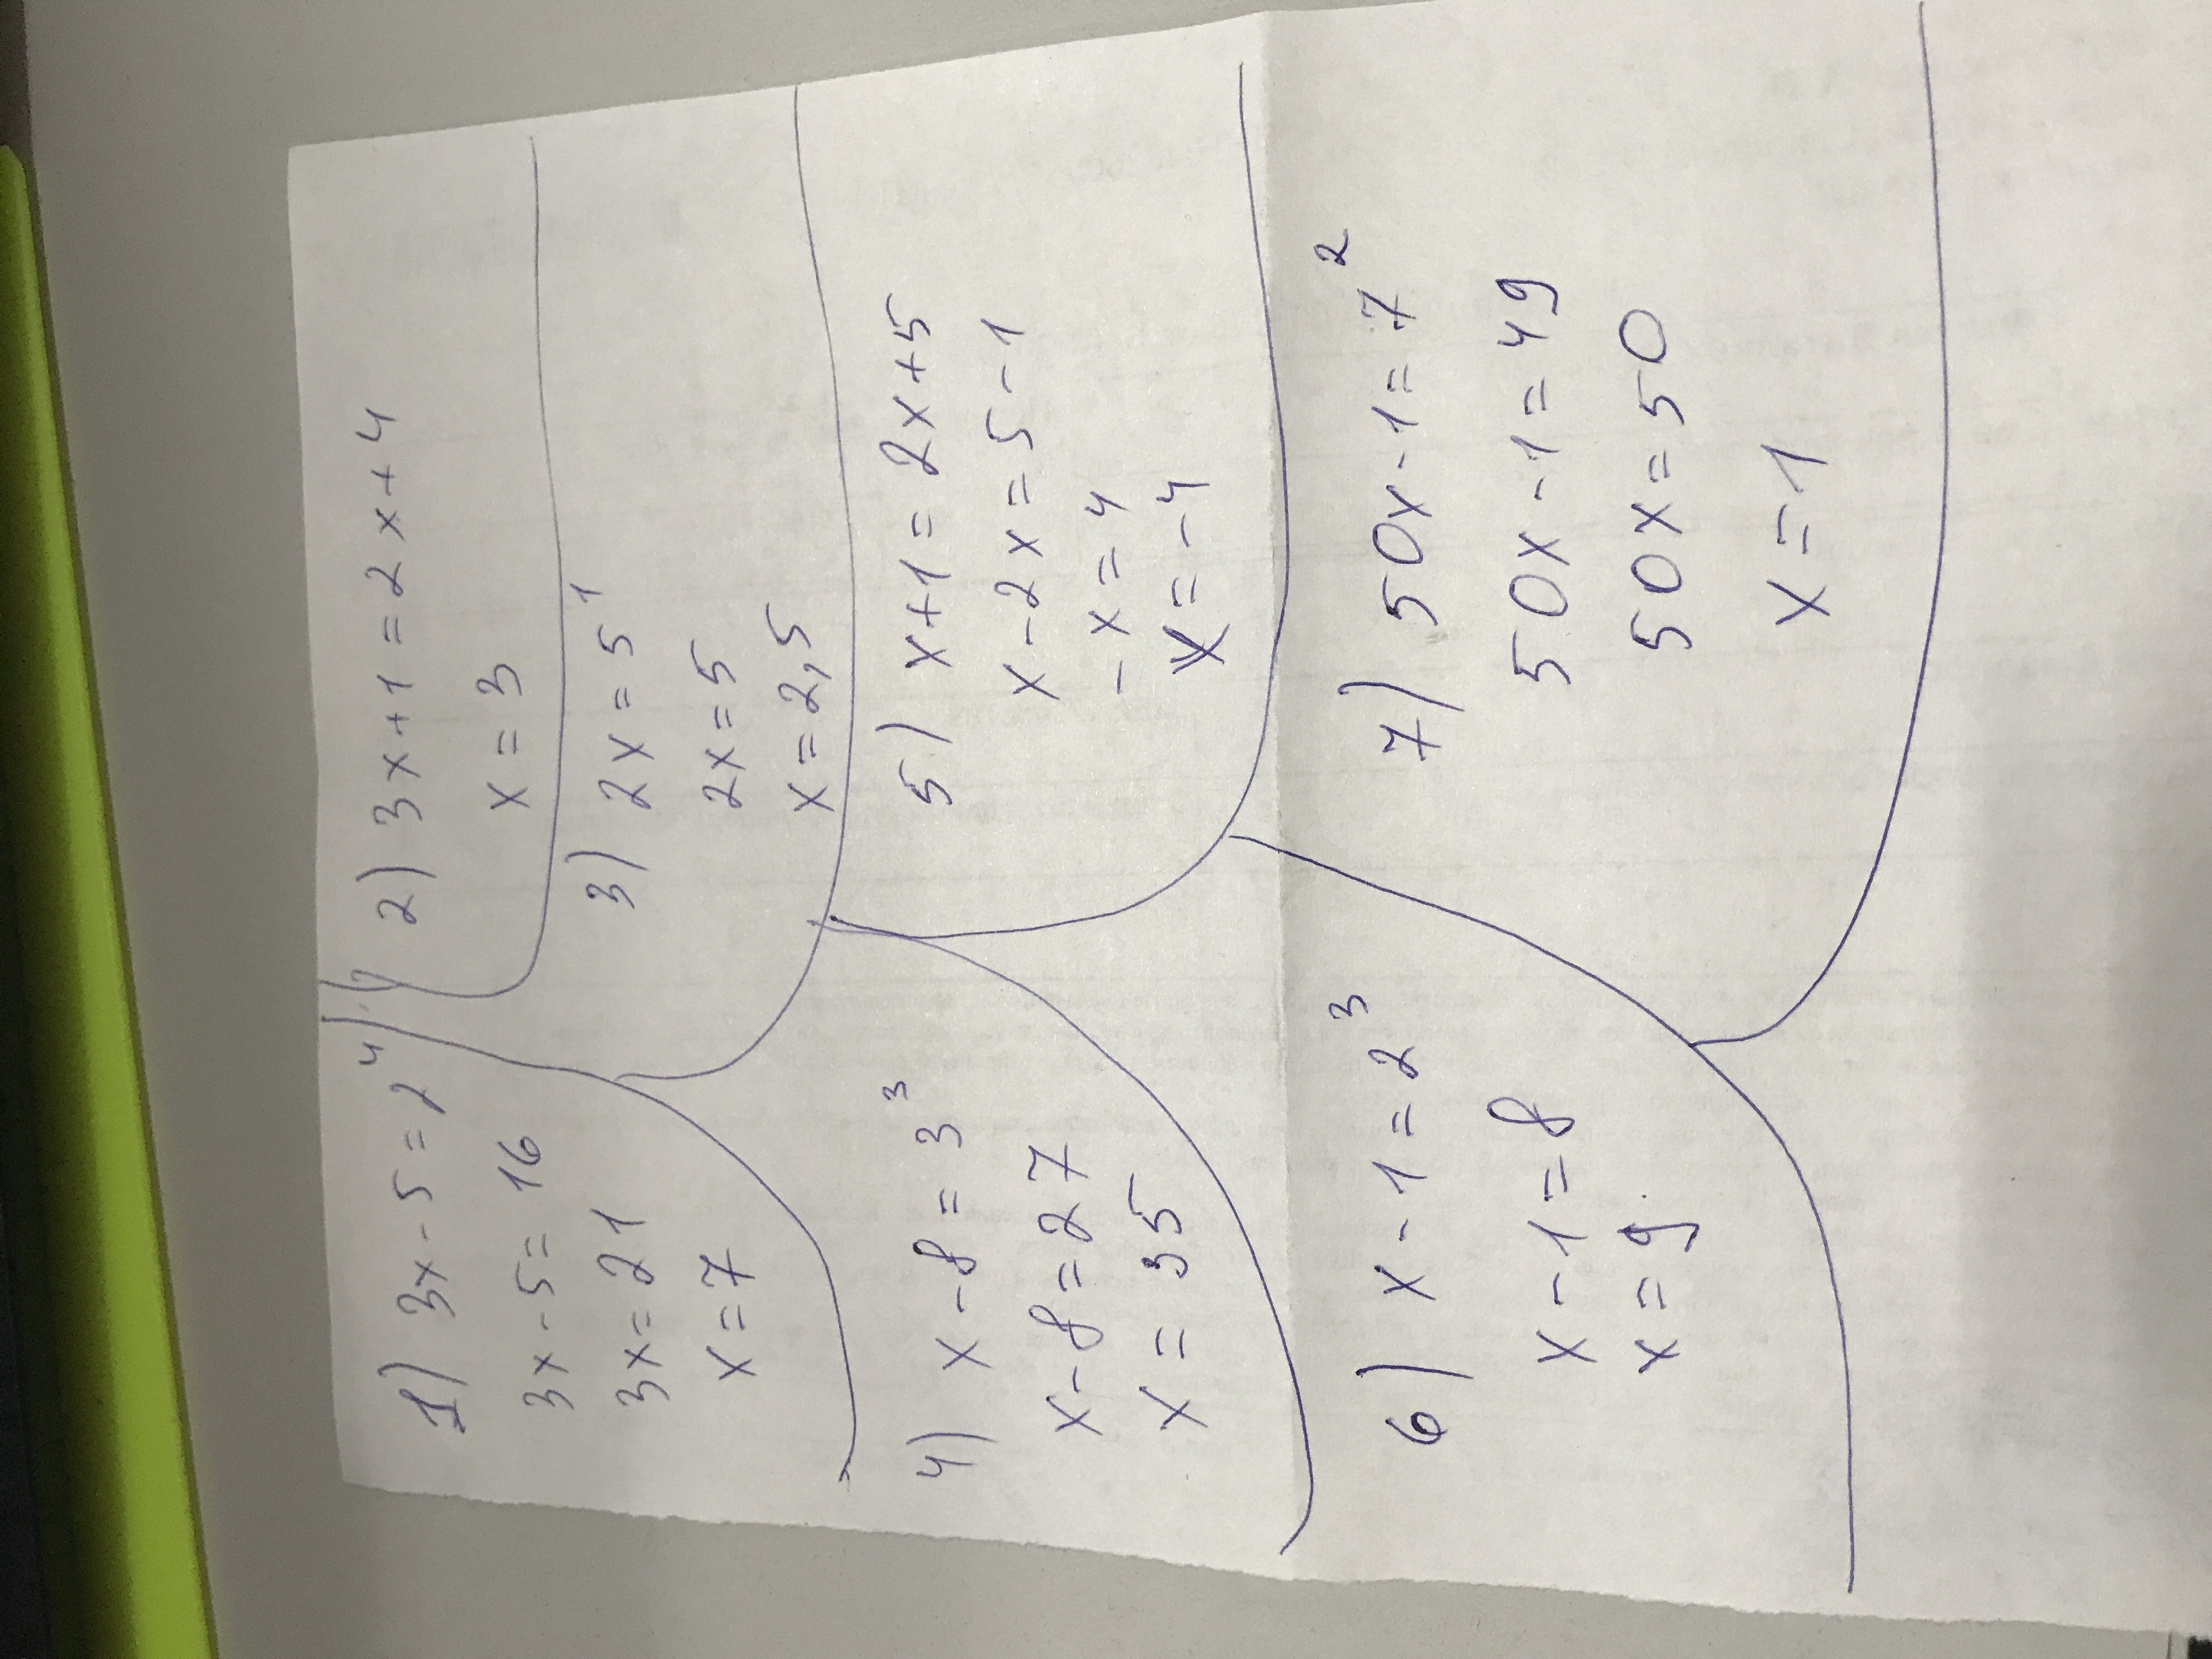 1) 3x-5=2⁴
3x-5=16
3x=21
x=7
2) 3x+1=2x+4
x=3
3) 2x=5¹
2x=5
x=2,5
4) x-8=3³
x-8=27
x=35
5) x+1=2x+5
x-2x=5-1
-x=4
x=-4
6) x-1=2³
x-1=8
x=9
7) 50x-1=7²
50x-1=49
50x=50
x=1